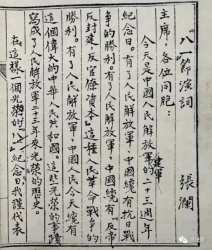 八一節演詞
張瀾
主席，各位同胞：
今天是中國人民解放軍建軍的二十三週年
紀念日。有了人民解放軍，中國纔有抗戰
爭的勝利，有了人民解放軍，中國纔有反帝
反封建、反官僚資本，這種人民革命戰爭的
勝利，有了人民解放軍，中國人民今天纔有
這個偉大的中華人民共和國。這些光榮的事蹟
寫成了人民解放軍二十三年來光榮的歷史。
在這樣一個光榮的「八一」紀念日，我謹代表